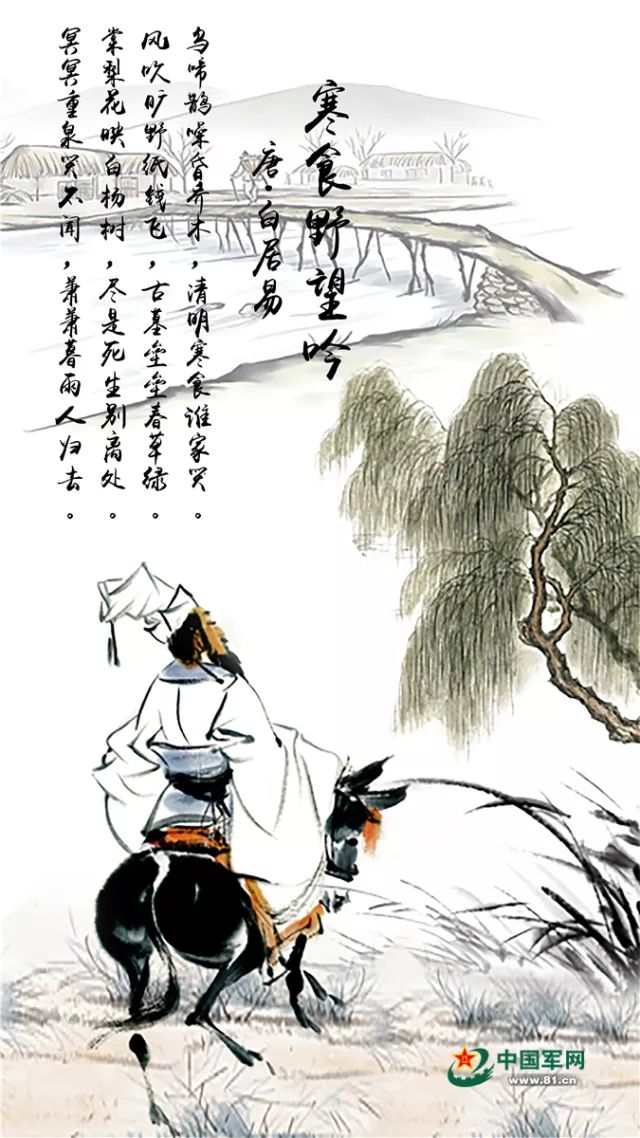 寒食野望吟
唐·白居易
乌啼鹊噪昏乔木，清明寒食谁家哭。
风吹旷野纸钱飞，古墓垒垒春草绿。
棠梨花映白杨树，尽是死生别离处。
冥冥重泉哭不闻，萧萧暮雨人归去。
中国军网
www.81.cn